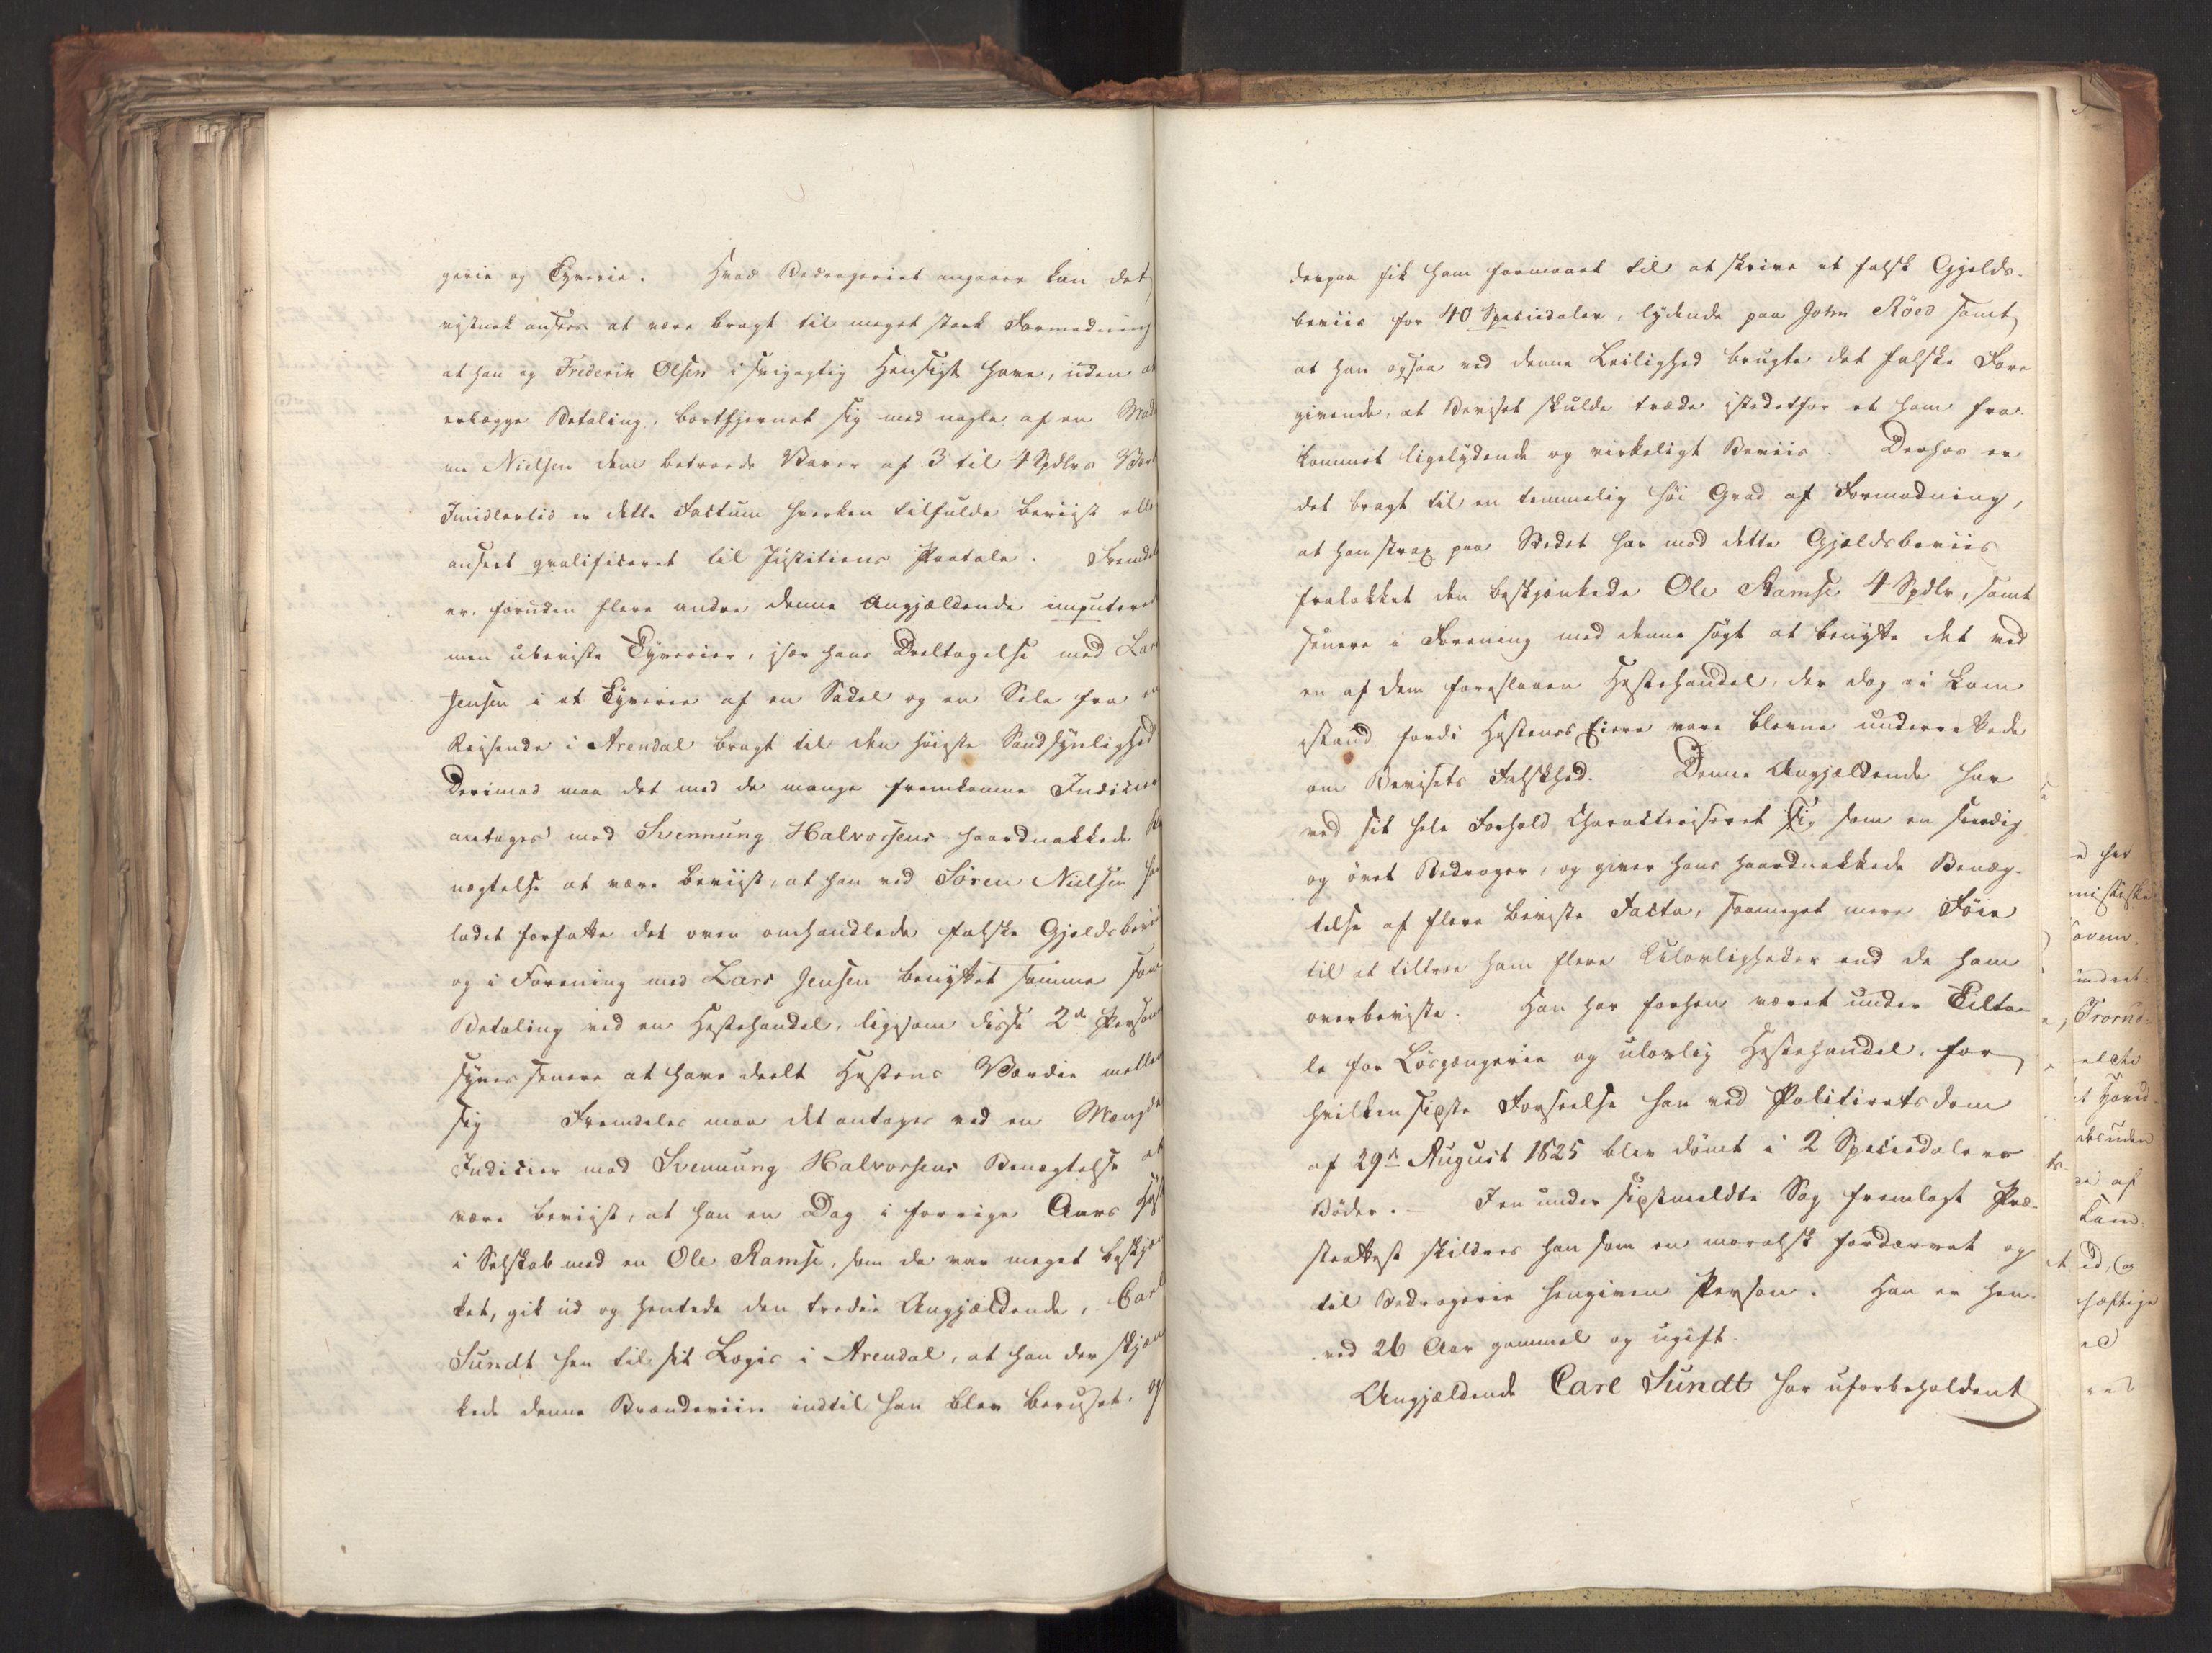 gerie og Tyverie. Hvad Bedrageriet angaaer kan det
vistnok ansees at være bragt til meget stærk Formodning
at han og Frederik Olsen i svigagtig Hensigt have, uden at
erlægge Betaling, bortfjernet sig med nogle af en Mada
me Nielsen dem betroede Varer af 3 til 4 Spdlrs Værd
Imidlertid er dette Factum hverken tilfulde beviist elle
anseet qvalificeret til Justitiens Paatale. Fremdel
er, foruden flere andre denne Angjældende imputered
men ubeviste Tyverier, især hans Deeltagelse med Lars
Jensen i et Tyverie af en Sadel og en Sele fra en
Reisende i Arendal bragt til den høieste Sandsynlighed
Derimod maa det med de mange fremkomne Indicier
antages mod Svennung Halvorsens haardnakkede Be
nægtelse at være beviist, at han ved Søren Nielsen har
ladet forfatte det oven omhandlede falske Gjeldsbeviis
og i Forening med Lars Jensen benyttet samme som
Betaling ved en Hestehandel, ligesom disse 2de Person
synes senere at have deelt Hestens Værdie mellem
sig. Fremdeles maa det antages ved en Mængde
Indicier mod Svennung Halvorsens Benægtelse at
være beviist, at han en Dag i forrige Aars Høst
i Selskab med en Ole Ramse, som da var meget beskjæn
ket, gik ud og hentede den tredie Angjældende, Carl
Sundt hen til sit Logis i Arendal, at han der skjæn
kede denne Brændeviin indtil han blev beruset, og
derpaa fik ham formaaet til at skrive et falsk Gjelds-
beviis for 40 Speciedaler, lydende paa John Röed samt
at han ogsaa ved denne Leilighed brugte det falske Fore
givende, at Beviset skulde træde istedetfor et ham fra-
kommet ligelydende og virkeligt Beviis. Derhos er
det bragt til en temmelig høi Grad af Formodning,
at han strax paa Stedet har med dette Gjældsbeviis
fralokket den beskjænkede Ole Ramse 4 Spdlr, samt
senere i Forening med denne søgt at benytte det ved
en af dem foreslaaen Hestehandel, der dog ei kom
istand fordi Hestenes Eiere vare blevne underrettede
om Bevisets Falskhed. Denne Angjældende har
ved sit hele Forhold Charakteriseret sig som en frædig
og øvet Bedrager, og giver hans haardnakkede Benæg-
telse af flere beviste Facta, saameget mere Føie
til at tiltroe ham flere Ulovligheder end de ham
overbeviste. Han har forhen været under Tilta-
le for Løsgængerie og ulovlig Hestehandel, for
hvilken sidste Forseelse han ved Politirets dom
af 29de August 1825 blev dømt i 2 Speciedalers
Bøder. – I en under sidstmeldte Sag fremlagt Præ-
steattest skildres han som en moralsk fordærvet og
til Bedragerie hengiven Person. Han er hen-
ved 26 Aar gammel og ugift.
Angjældende Carl Sundt har uforbeholdent